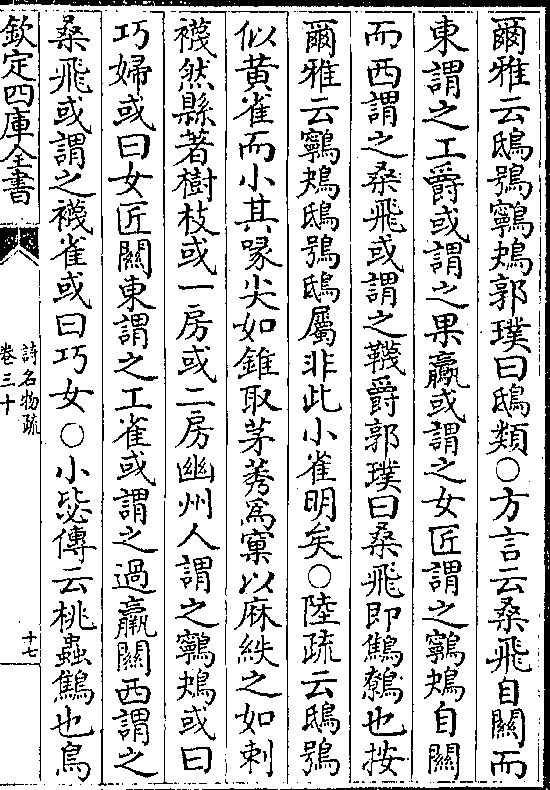 爾雅云鴟鴞鸋鴂郭璞曰鴟類○方言云桑飛自關而
東謂之工爵或謂之果蠃或謂之女匠謂之鸋鴂自關
而西謂之桑飛或謂之韈爵郭璞曰桑飛即鷦鷯也按
爾雅云鸋鴂鴟鴞鴟屬非此小雀明矣○陸疏云鴟鴞
似黃雀而小其喙尖如錐取茅莠爲窠以麻紩之如刺
襪然縣著樹枝或一房或二房幽州人謂之鸋鴂或曰
巧婦或曰女匠關東謂之工雀或謂之過蠃關西謂之
桑飛或謂之襪雀或曰巧女○小毖傳云桃蟲鷦也鳥
欽定四庫全書
詩名物疏
卷三十
十七